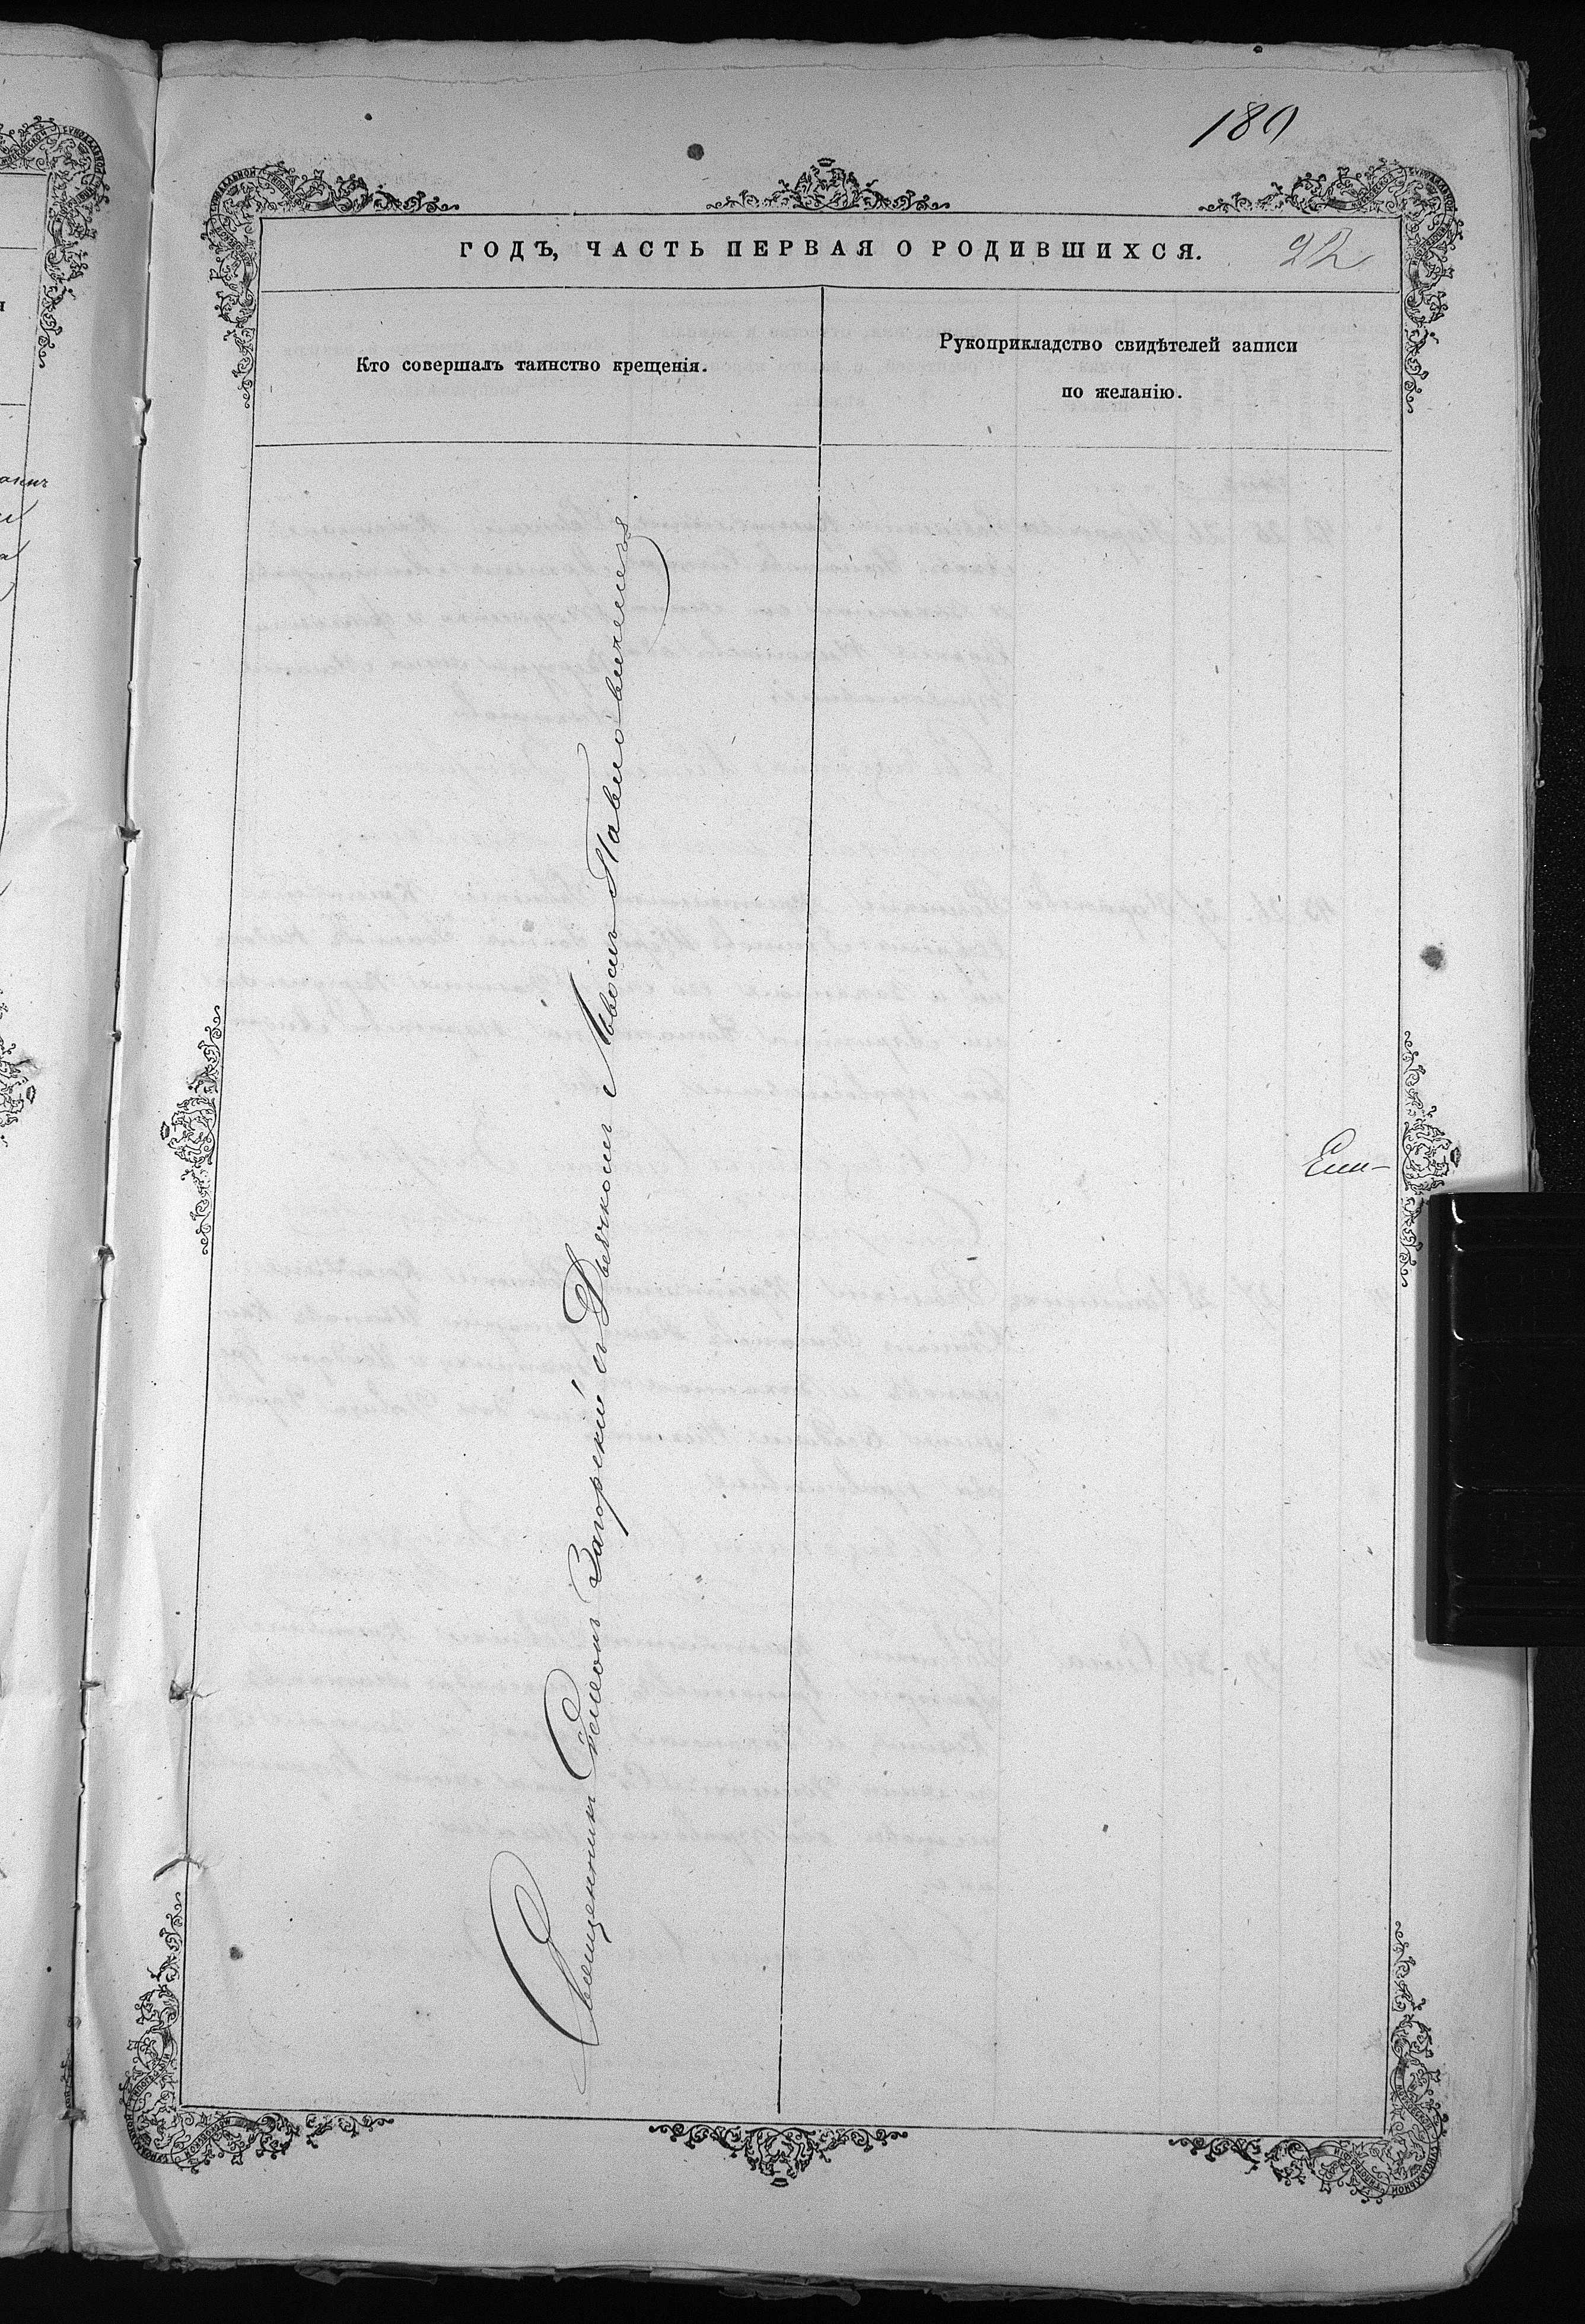 189
ГОДЪ, ЧАСТЬ ПЕРВАЯ О РОДИВШИХСЯ.
22
Кто совершалъ таинство крещенія.
Рукоприкладство свидѣтелей записи
по желанію.
Священникъ Симеонъ Загорскій съ Дьячкомъ Павловичемъ
Епи-